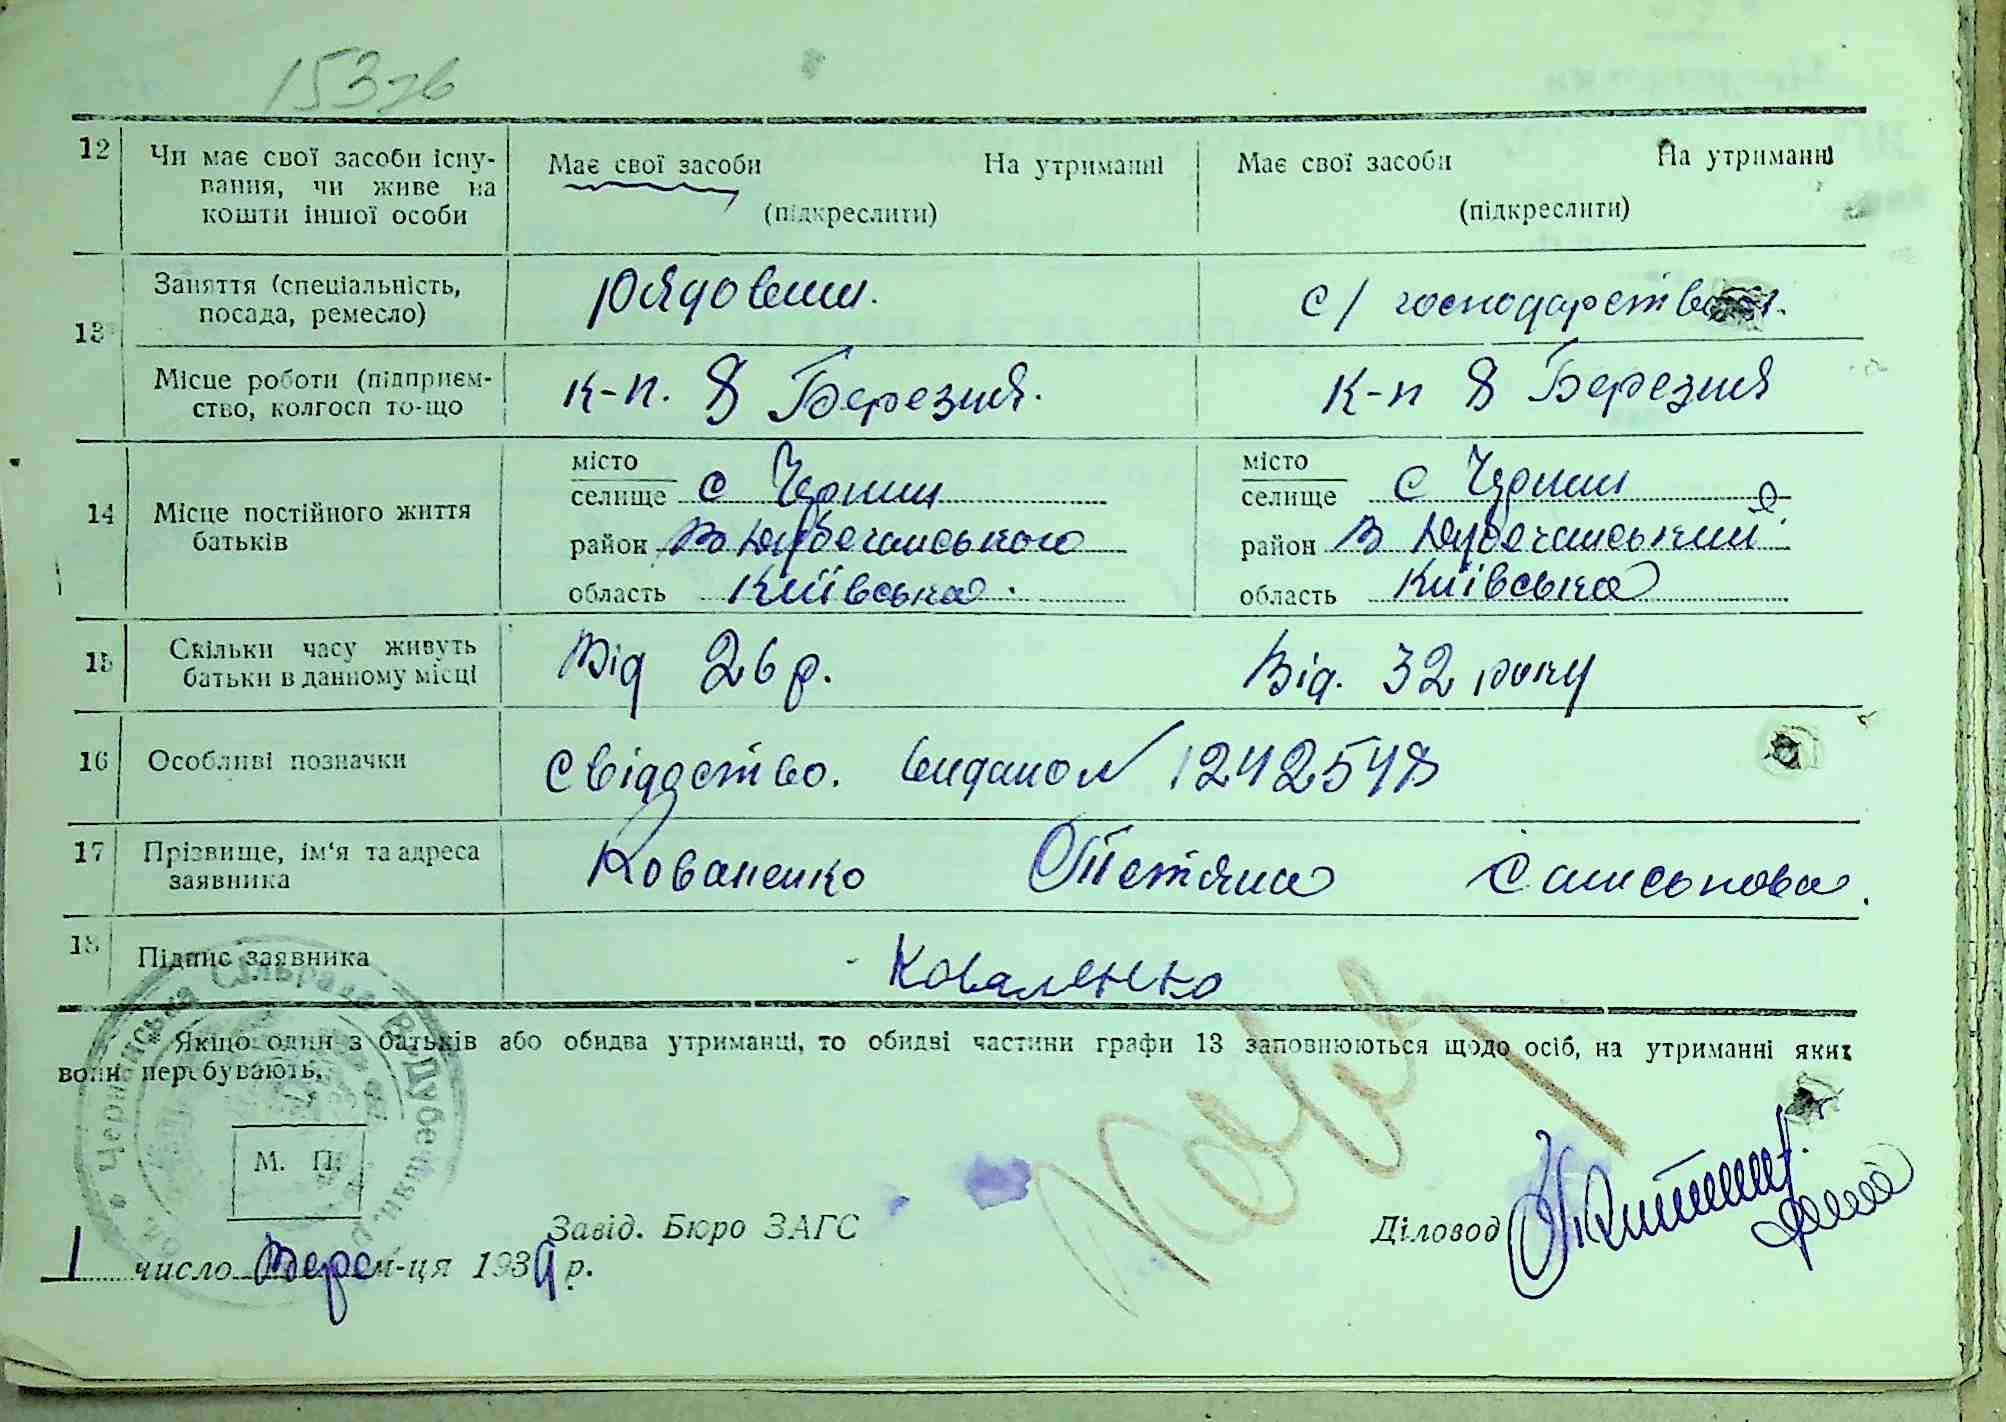 153зв
12 Чи має свої засоби існу-
вання, чи живе на
кошти іншої особи
Має свої засоби На утриманні
(підкреслити)
Має свої засоби На утриманні
(підкреслити)
13 Заняття (спеціальність,
посада, ремесло)
рядовий.
с/господарство
Місце роботи (підприєм-
ство, колгосп то-що
к-п. 8 Березня.
к-п 8 Березня
14 Місце постійного життя
батьків
місто
селище с Чернин
район В Дубечанського
область Київська.
місто
селище с Чернин
район В Дубечанський
область Київська
15 Скільки часу живуть
батьки в данному місці
Від 26 р.
Від. 32 року
16 Особливі позначки
свідоство. видано № 1242548
17 Прізвище, ім‘я та адреса
заявника
Коваленко Тетяна
18 Підпис заявника
Коваленко
Якщо один з батьків або обидва утриманці, то обидві частини графи 13 заповнюються щодо осіб, на утриманні яких
вони перебувають.
Чернинська Сільрада В-Дубечан. р.
М. П.
Завід. Бюро ЗАГС
Діловод
1 число м-ця 1939 р.